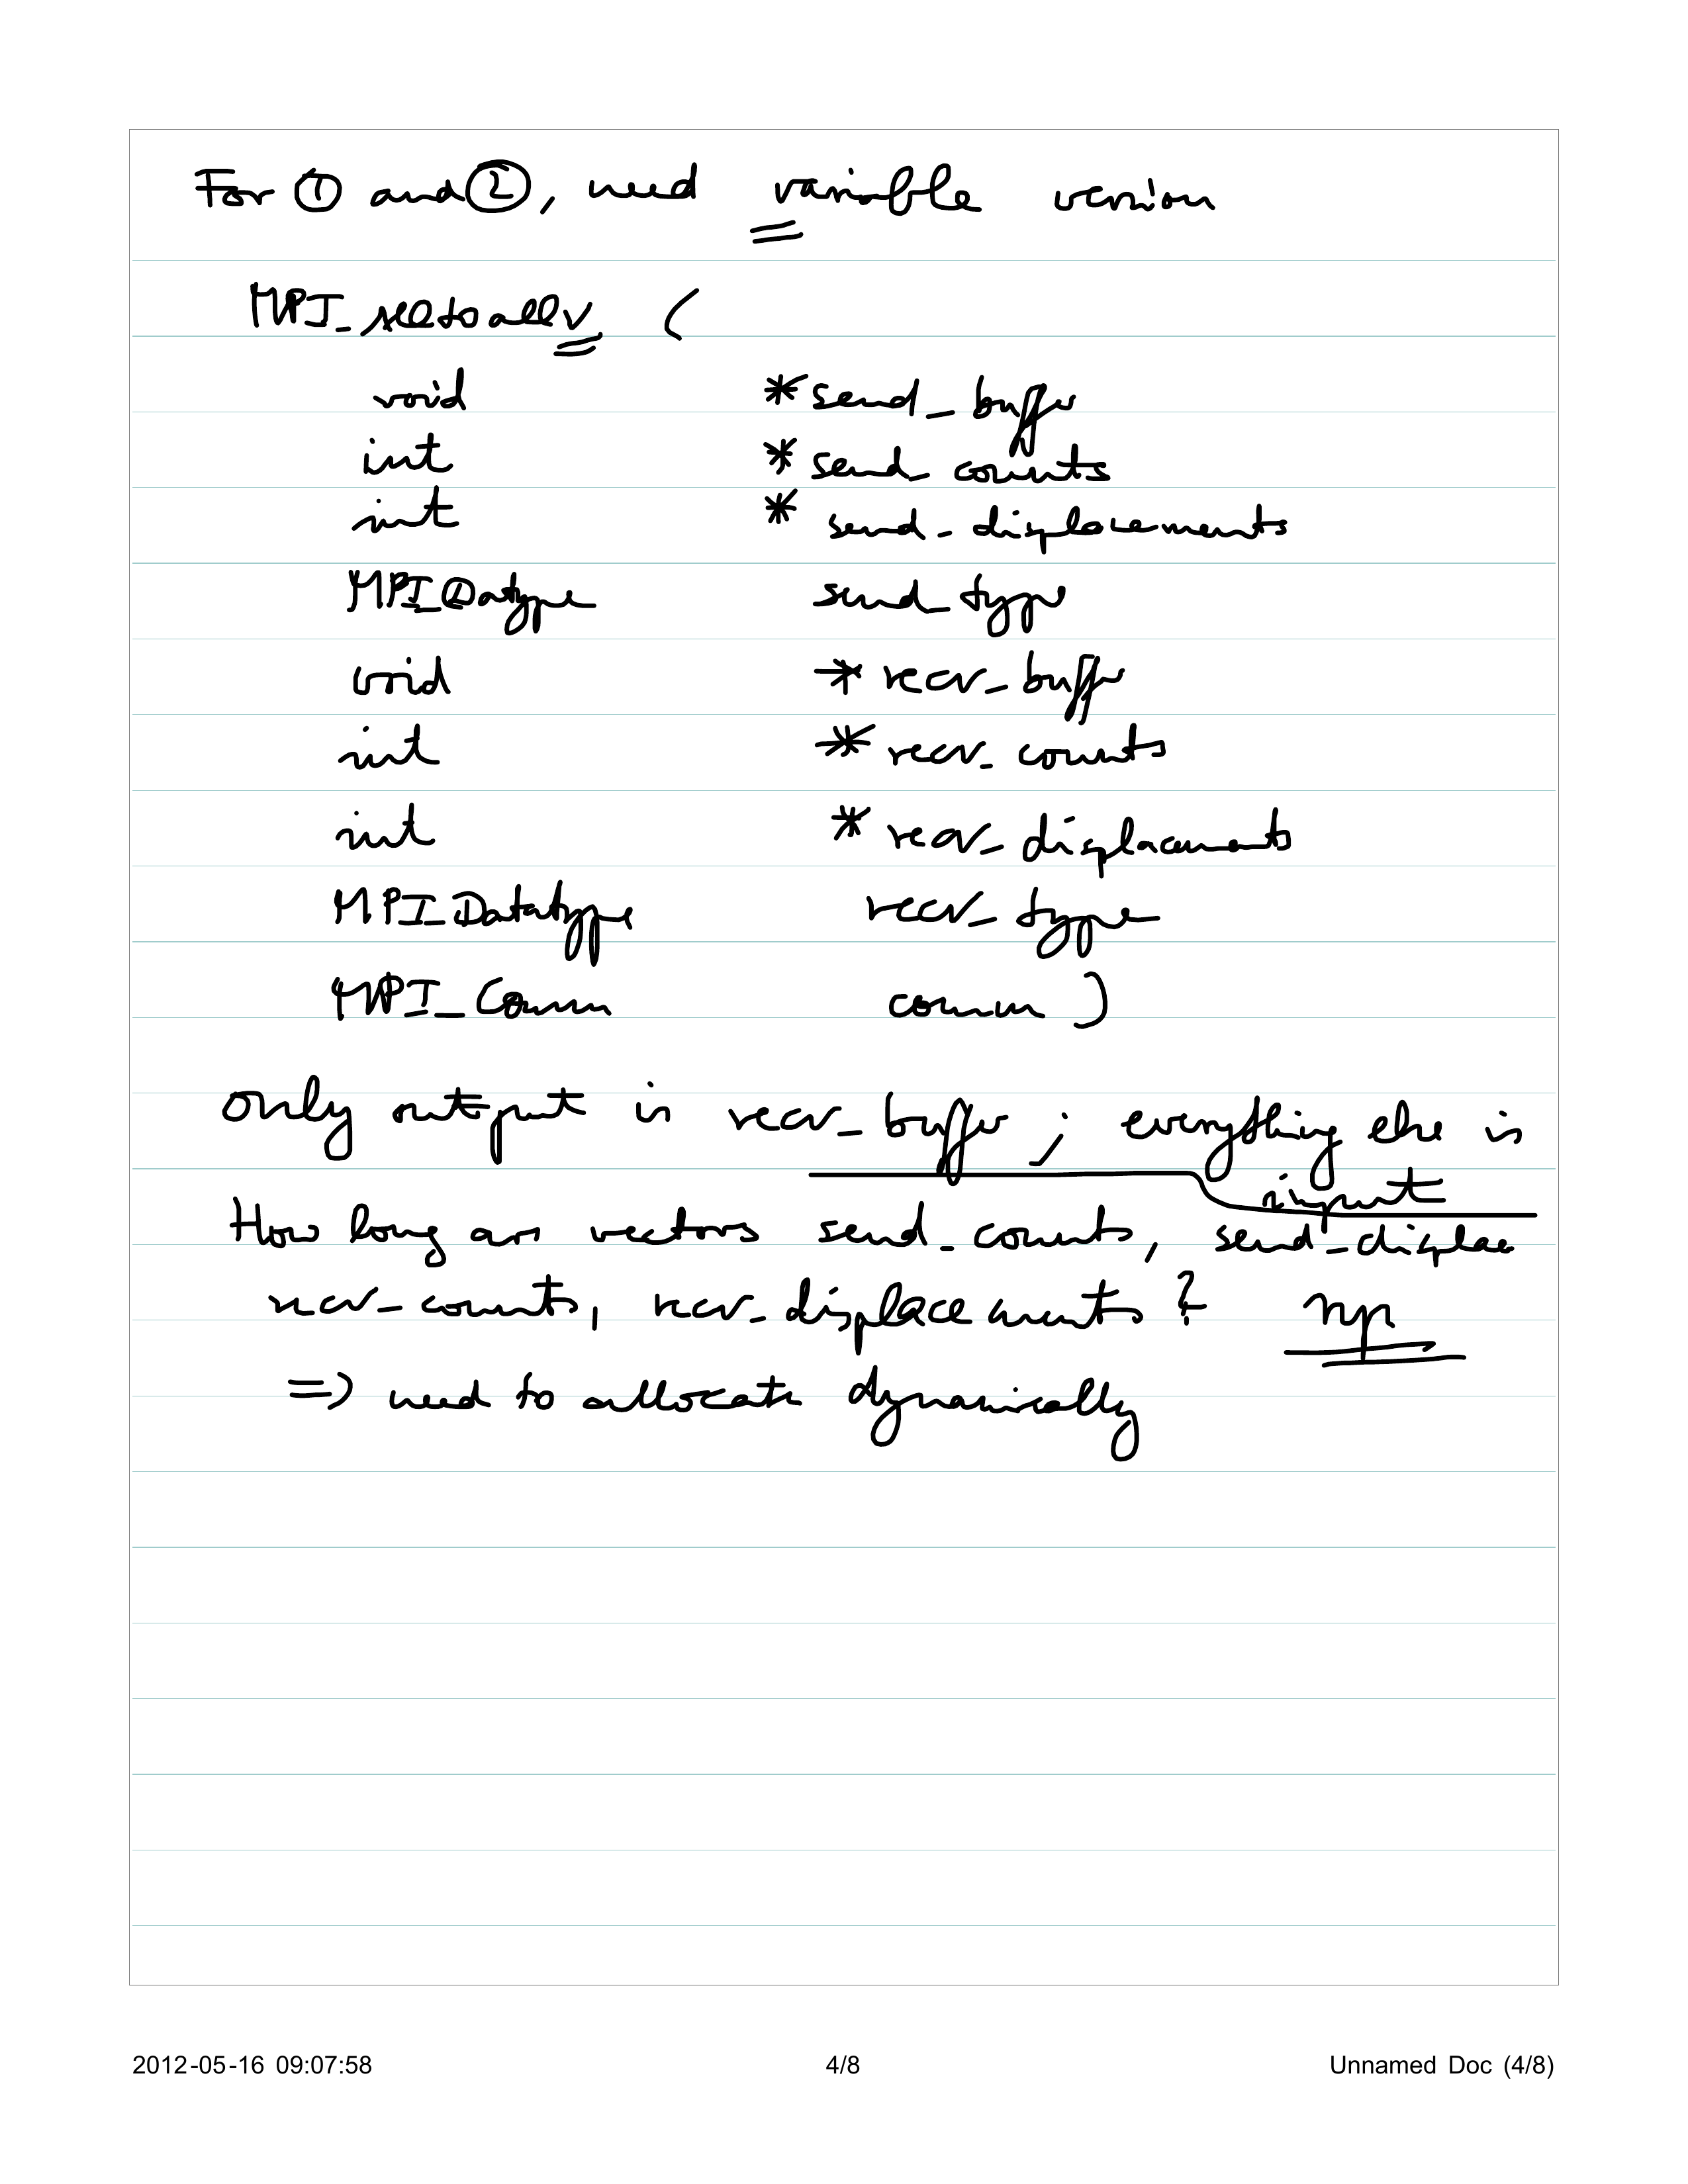 For ① and ②, need variable version
MPI_Alltoallv (
void *send_buffer
int *send_counts
int * send_displacements
MPI_Datype send_type
void *recv_buffer
int *recv_counts
int *recv_displacements
MPI_Datatype recv_type
MPI_Comm comm )
Only output is recv_buffer ; everything else is
input
How long are vectors send_counts, send_displac
recv_counts, recv_displacements ? np
=> need to allocate dynamically
2012-05-16 09:07:58 4/8 Unnamed Doc (4/8)